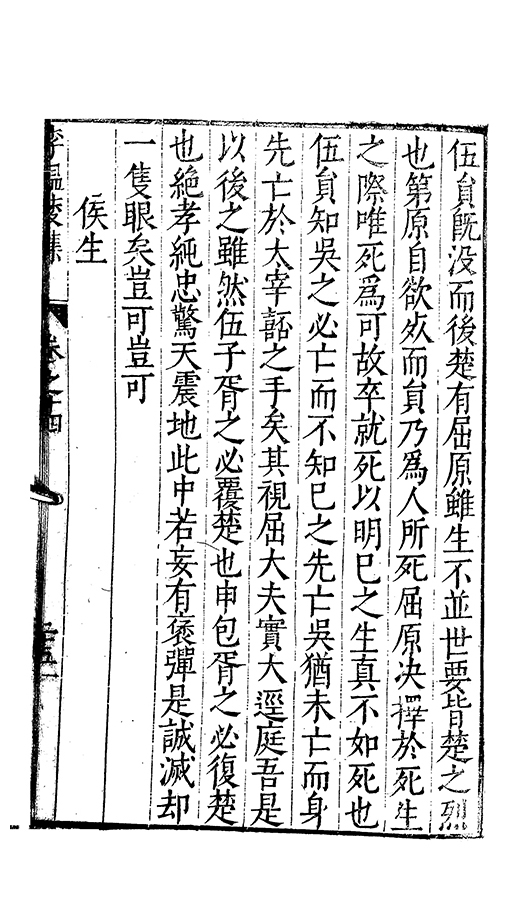 伍員既没而後楚有屈原雖生不並世要皆楚之烈
也第原自欲死而員乃爲人所死屈原决擇於死生
之際唯死爲可故卒就死以明已之生真不如死也
伍員知吳之必亡而不知已之先亡吳猶未亡而身
先亡於太宰嚭之手矣其視屈大夫實大逕庭吾是
以後之雖然伍子胥之必覆楚也申包胥之必復楚
也絶孝純忠驚天震地此中若妄有褒彈是誠滅却
一隻眼矣豈可豈可
侯生
李温陵集
卷之十四